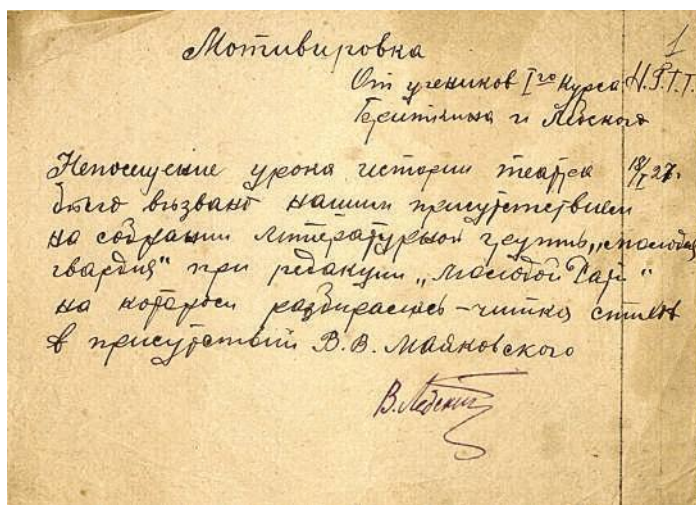 Мотивировка
1
От учеников I го курса Н.Г.Т.Т.
и Лебского
Непосещение урока истории театра 18/I 27г.
было вызвано нашим присутствием
на собрании литературной группы „молодая
гвардия“ при редакции „Молодой
на котором разбиралась – читка стихов
в присутствии В. В. Маяковского
В. Лебский